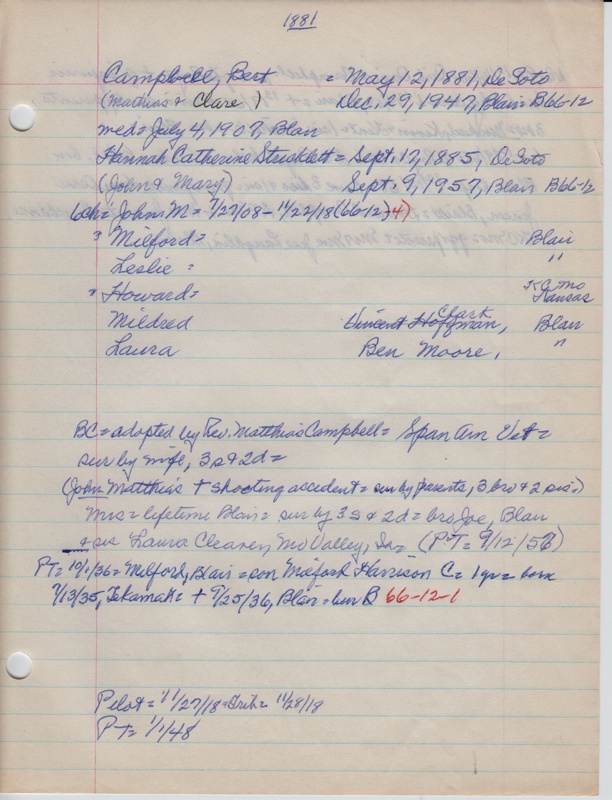 1881
Campbell, Bert = May 12, 1881, De Soto
(Mathias & Clare) Dec, 29, 1947, Blair = B66-12
med = July 4, 1907, Blair
Hannah Catherine Stricklett = Sept. 17, 1885, De Soto
(John & Mary) Sept. 9, 1957, Blair B66-12
6ch = John M = 7/27/08 - 11/22/18 (66-12-4)
" Milford = Blair
Leslie = "
" Howard = K.C. Mo Kansas
Mildred Vincent Hoffman, Clark Blair
Laura Ben Moore, "
BC = adopted by Rev. Matthias Campbell = Span Am Vet =
sur by wife, 3s & 2d =
(John Matthias + shooting accident = sur by parents, 3 bro & 2 sis =)
Mrs = lifetime Blair = sur by 3s & 2d = bro Joe, Blair
& sis Laura Cleaver, Mo Valley, Ia = (PT = 9/12/56)
PT = 10/1/36 = Milford, Blair = son Milford Harrison C = 1 yr = born
7/13/35, Tekamah = + 9/25/36, Blair = bur B 66-12-1
Pilot = 11/27/18 = Trib = 11/28/18
PT = 1/1/48